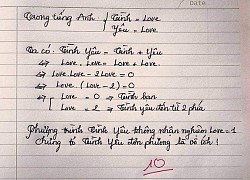 Date
Trong tiếng Anh { Tình = Love
Yêu = Love
Ta có : Tình Yêu = Tình + Yêu
⇔ Love . Love = Love + Love
⇔ Love.Love - 2Love = 0
⇔ Love.(Love - 2) = 0
⇔ [ Love = 0 → Tình bạn
Love = 2 → Tình yêu đến từ 2 phía
Phương trình Tình Yêu không nhận nghiệm Love = 1
Chứng tỏ Tình Yêu đơn phương là vô ích !
10